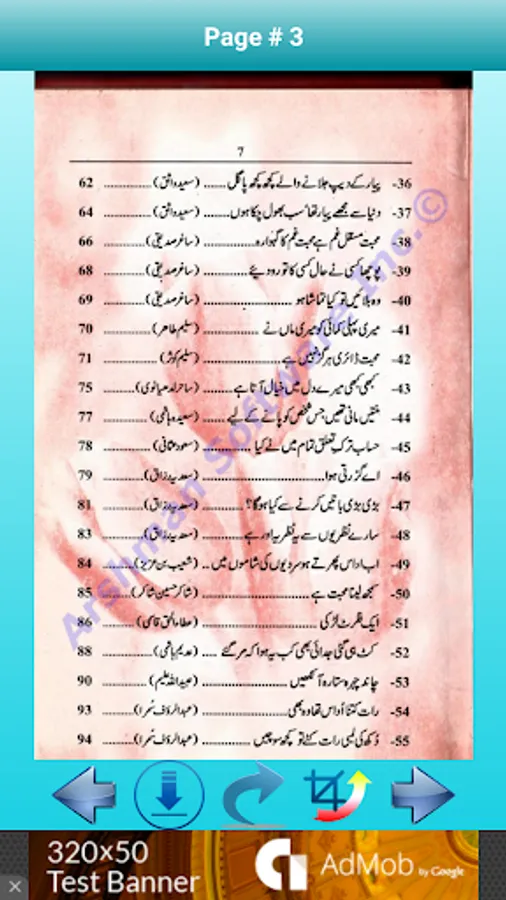 Page # 3
7
36- پیار کے دیپ جلانے والے کچھ کچھ پاگل ...... (سعید واثق) .............. 62
37- دنیا سے مجھے پیار تھا سب بھول چکا ہوں ...... (سعید واثق) .............. 64
38- محبت مستقل غم ہے محبت غم کا گہوارہ .............. (ساغر صدیقی) .............. 66
39- پوچھا کسی نے حال کسی کا تو رو دیئے .............. (ساغر صدیقی) .............. 68
40- وہ بلائیں تو کیا تماشا ہو .............. (ساغر صدیقی) .............. 69
41- میری پہلی کمائی کو میری ماں نے .............. (سلیم طاہر) .............. 70
42- محبت ڈائری ہرگز نہیں ہے .............. (سلیم کوثر) .............. 71
43- کبھی کبھی میرے دل میں خیال آتا ہے ........ (ساحر لدھیانوی) .............. 75
44- منتیں مانی تھیں جس شخص کو پانے کے لیے ...... (سعیدہ ہاشمی) .............. 77
45- حساب ترکِ تعلق تمام میں نے کیا .............. (سعود عثمانی) .............. 78
46- اے گزرتی ہوا .............. (سعدیہ رزاق) .............. 79
47- بڑی بڑی باتیں کرنے سے کیا ہوگا؟ .............. (سعدیہ رزاق) .............. 81
48- سارے نظریوں سے یہ نظریہ اور ہے .............. (سعدیہ رزاق) .............. 83
49- اب اداس پھرتے ہو سردیوں کی شاموں میں .. (شعیب بن عزیز) .............. 84
50- سمجھ لینا محبت ہے .............. (شاکر حسین شاکر) .............. 85
51- ایک فلرٹ لڑکی .............. (عطاء الحق قاسمی) .............. 86
52- کٹ ہی گئی جدائی بھی کب یہ ہوا کہ مر گئے .... (عدیم ہاشمی) .............. 88
53- چاند چہرہ ستارہ آنکھیں .............. (عبید اللہ علیم) .............. 90
54- رات کتنا اُداس تھا وہ بھی .............. (عبدالرؤف سمرا) .............. 93
55- دُکھ کی لمبی رات کٹے تو کچھ سوچیں .............. (عبدالرؤف سمرا) .............. 94
Arshman Software Inc.©
320×50
Test Banner
AdMob by Google